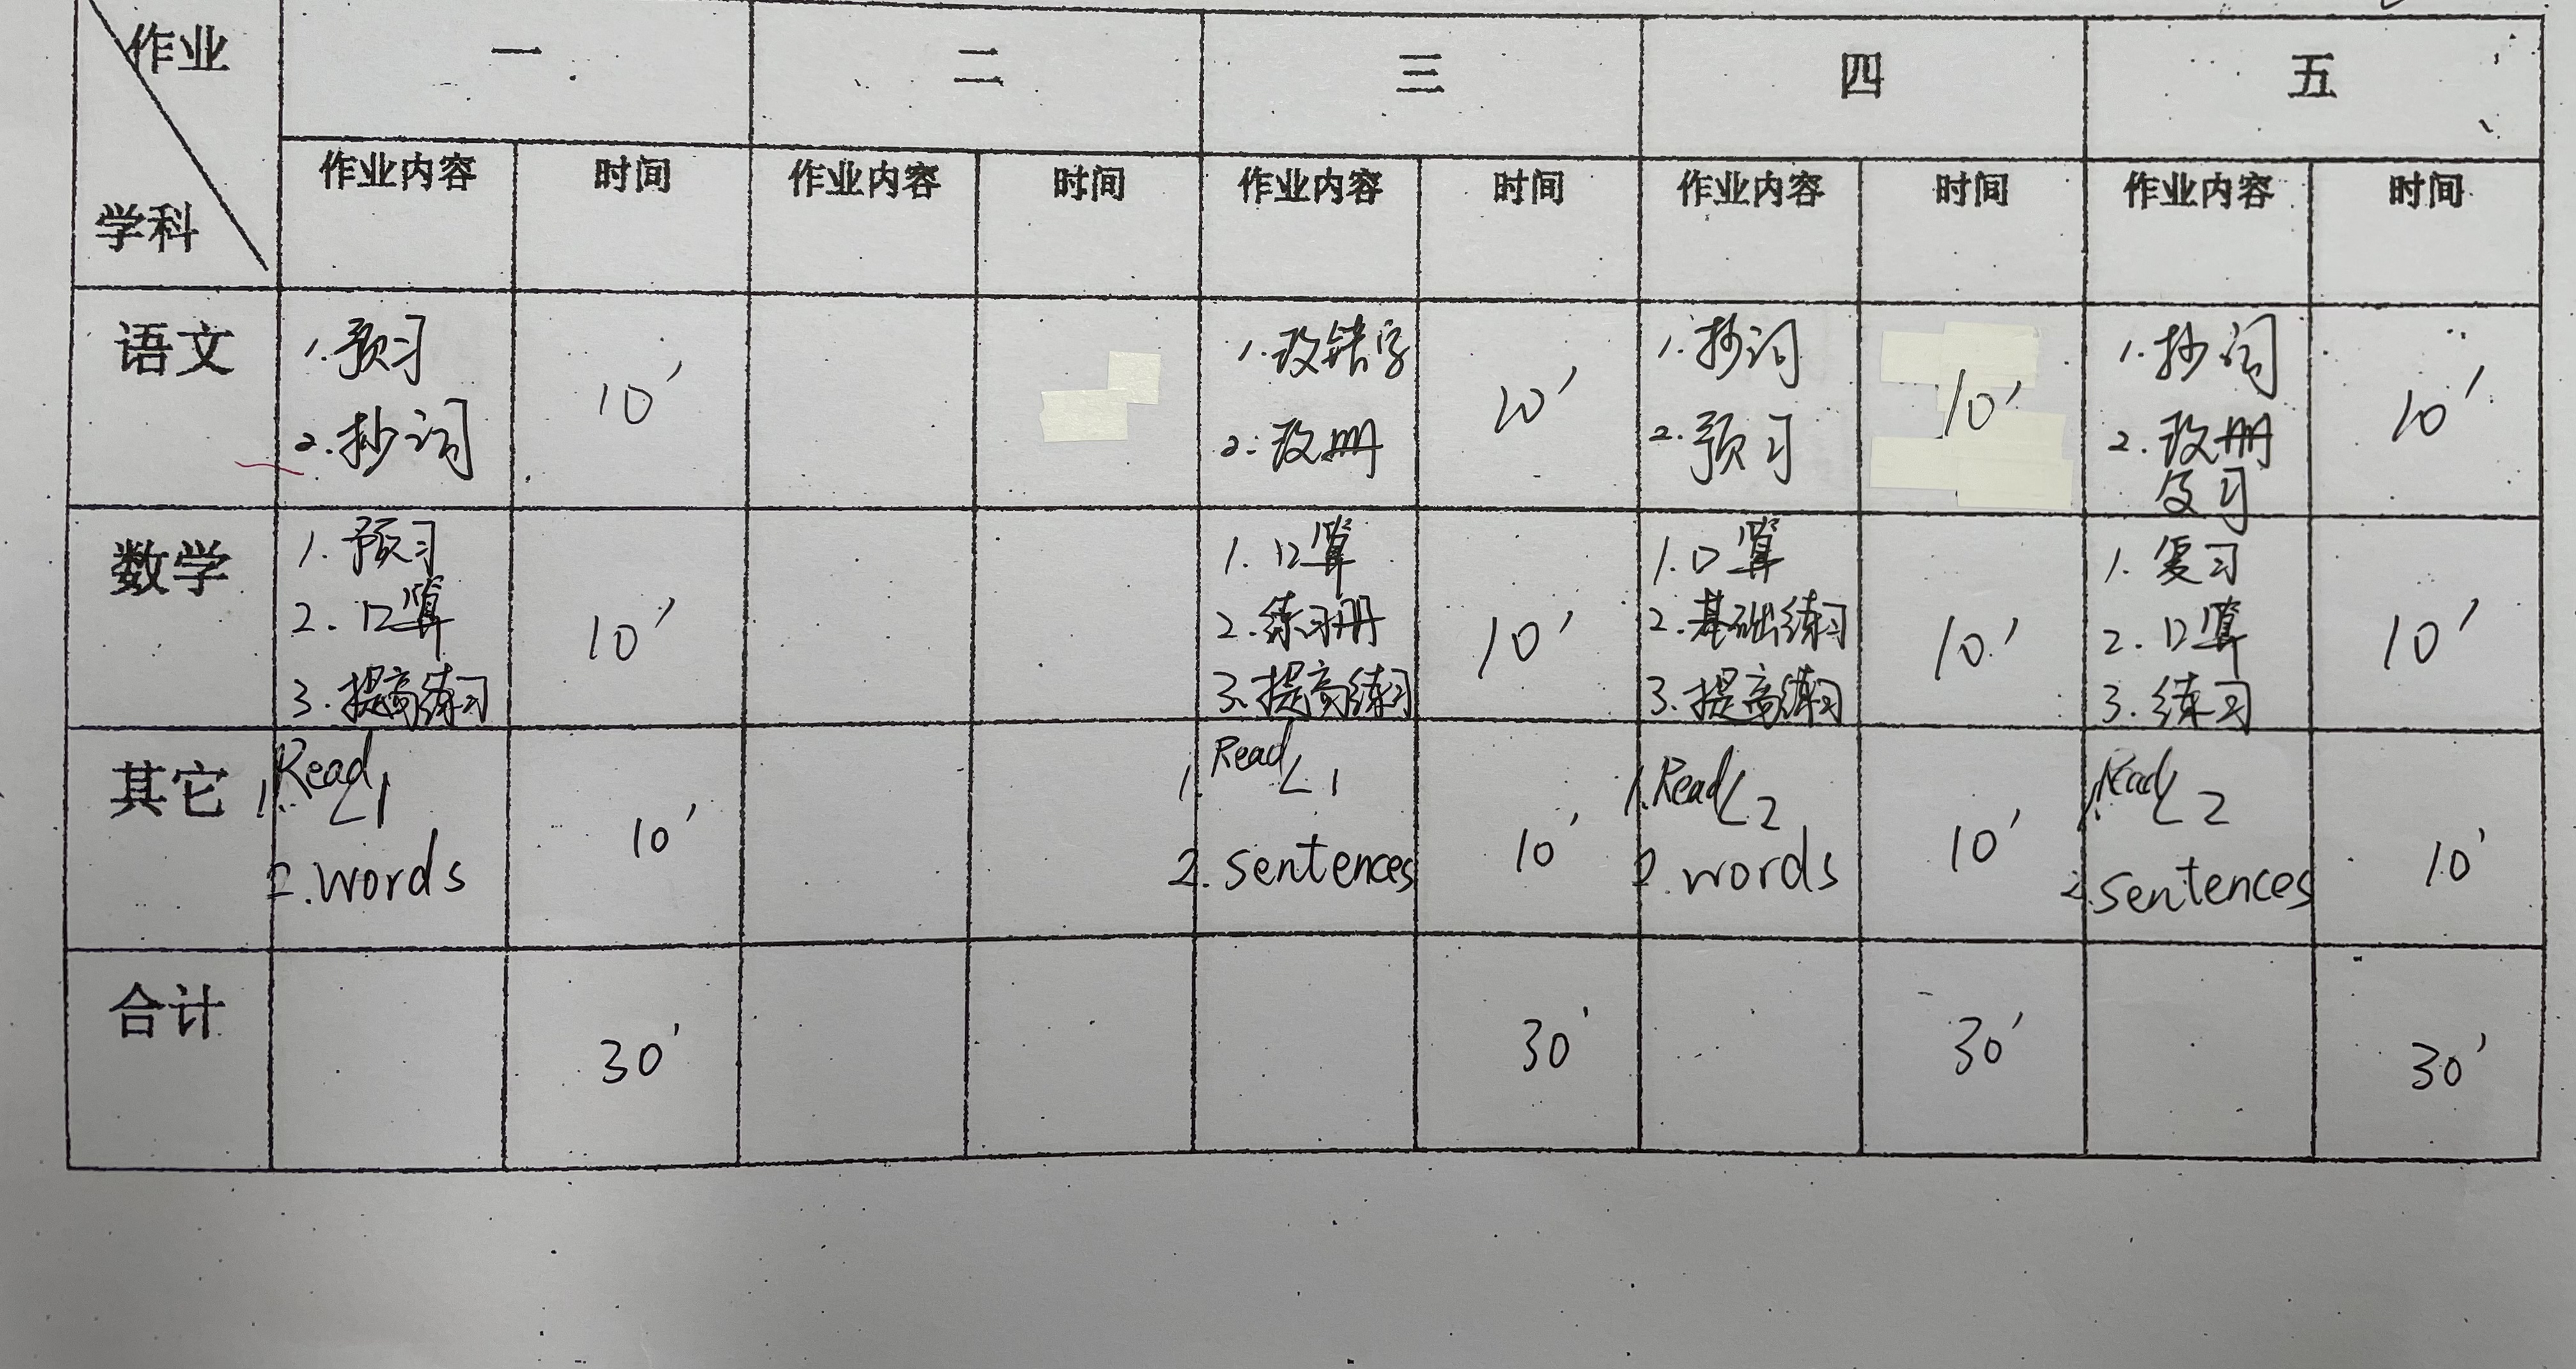 作业 一 二 三 四 五
学科 作业内容 时间 作业内容 时间 作业内容 时间 作业内容 时间 作业内容 时间
语文
1.预习
2.抄词
10′
1.改错字
2.改册
10′
1.抄词
2.预习
10′
1.抄词
2.改册
复习
10′
数学
1.预习
2.口算
3.提高练习
10′
1.口算
2.练习册
3.提高练习
10′
1.口算
2.基础练习
3.提高练习
10′
1.复习
2.口算
3.练习
10′
其它
1.Read L1
2.words
10′
1.Read L1
2.sentences
10′
1.Read L2
2.words
10′
1.Read L2
2.sentences
10′
合计 30′ 30′ 30′ 30′